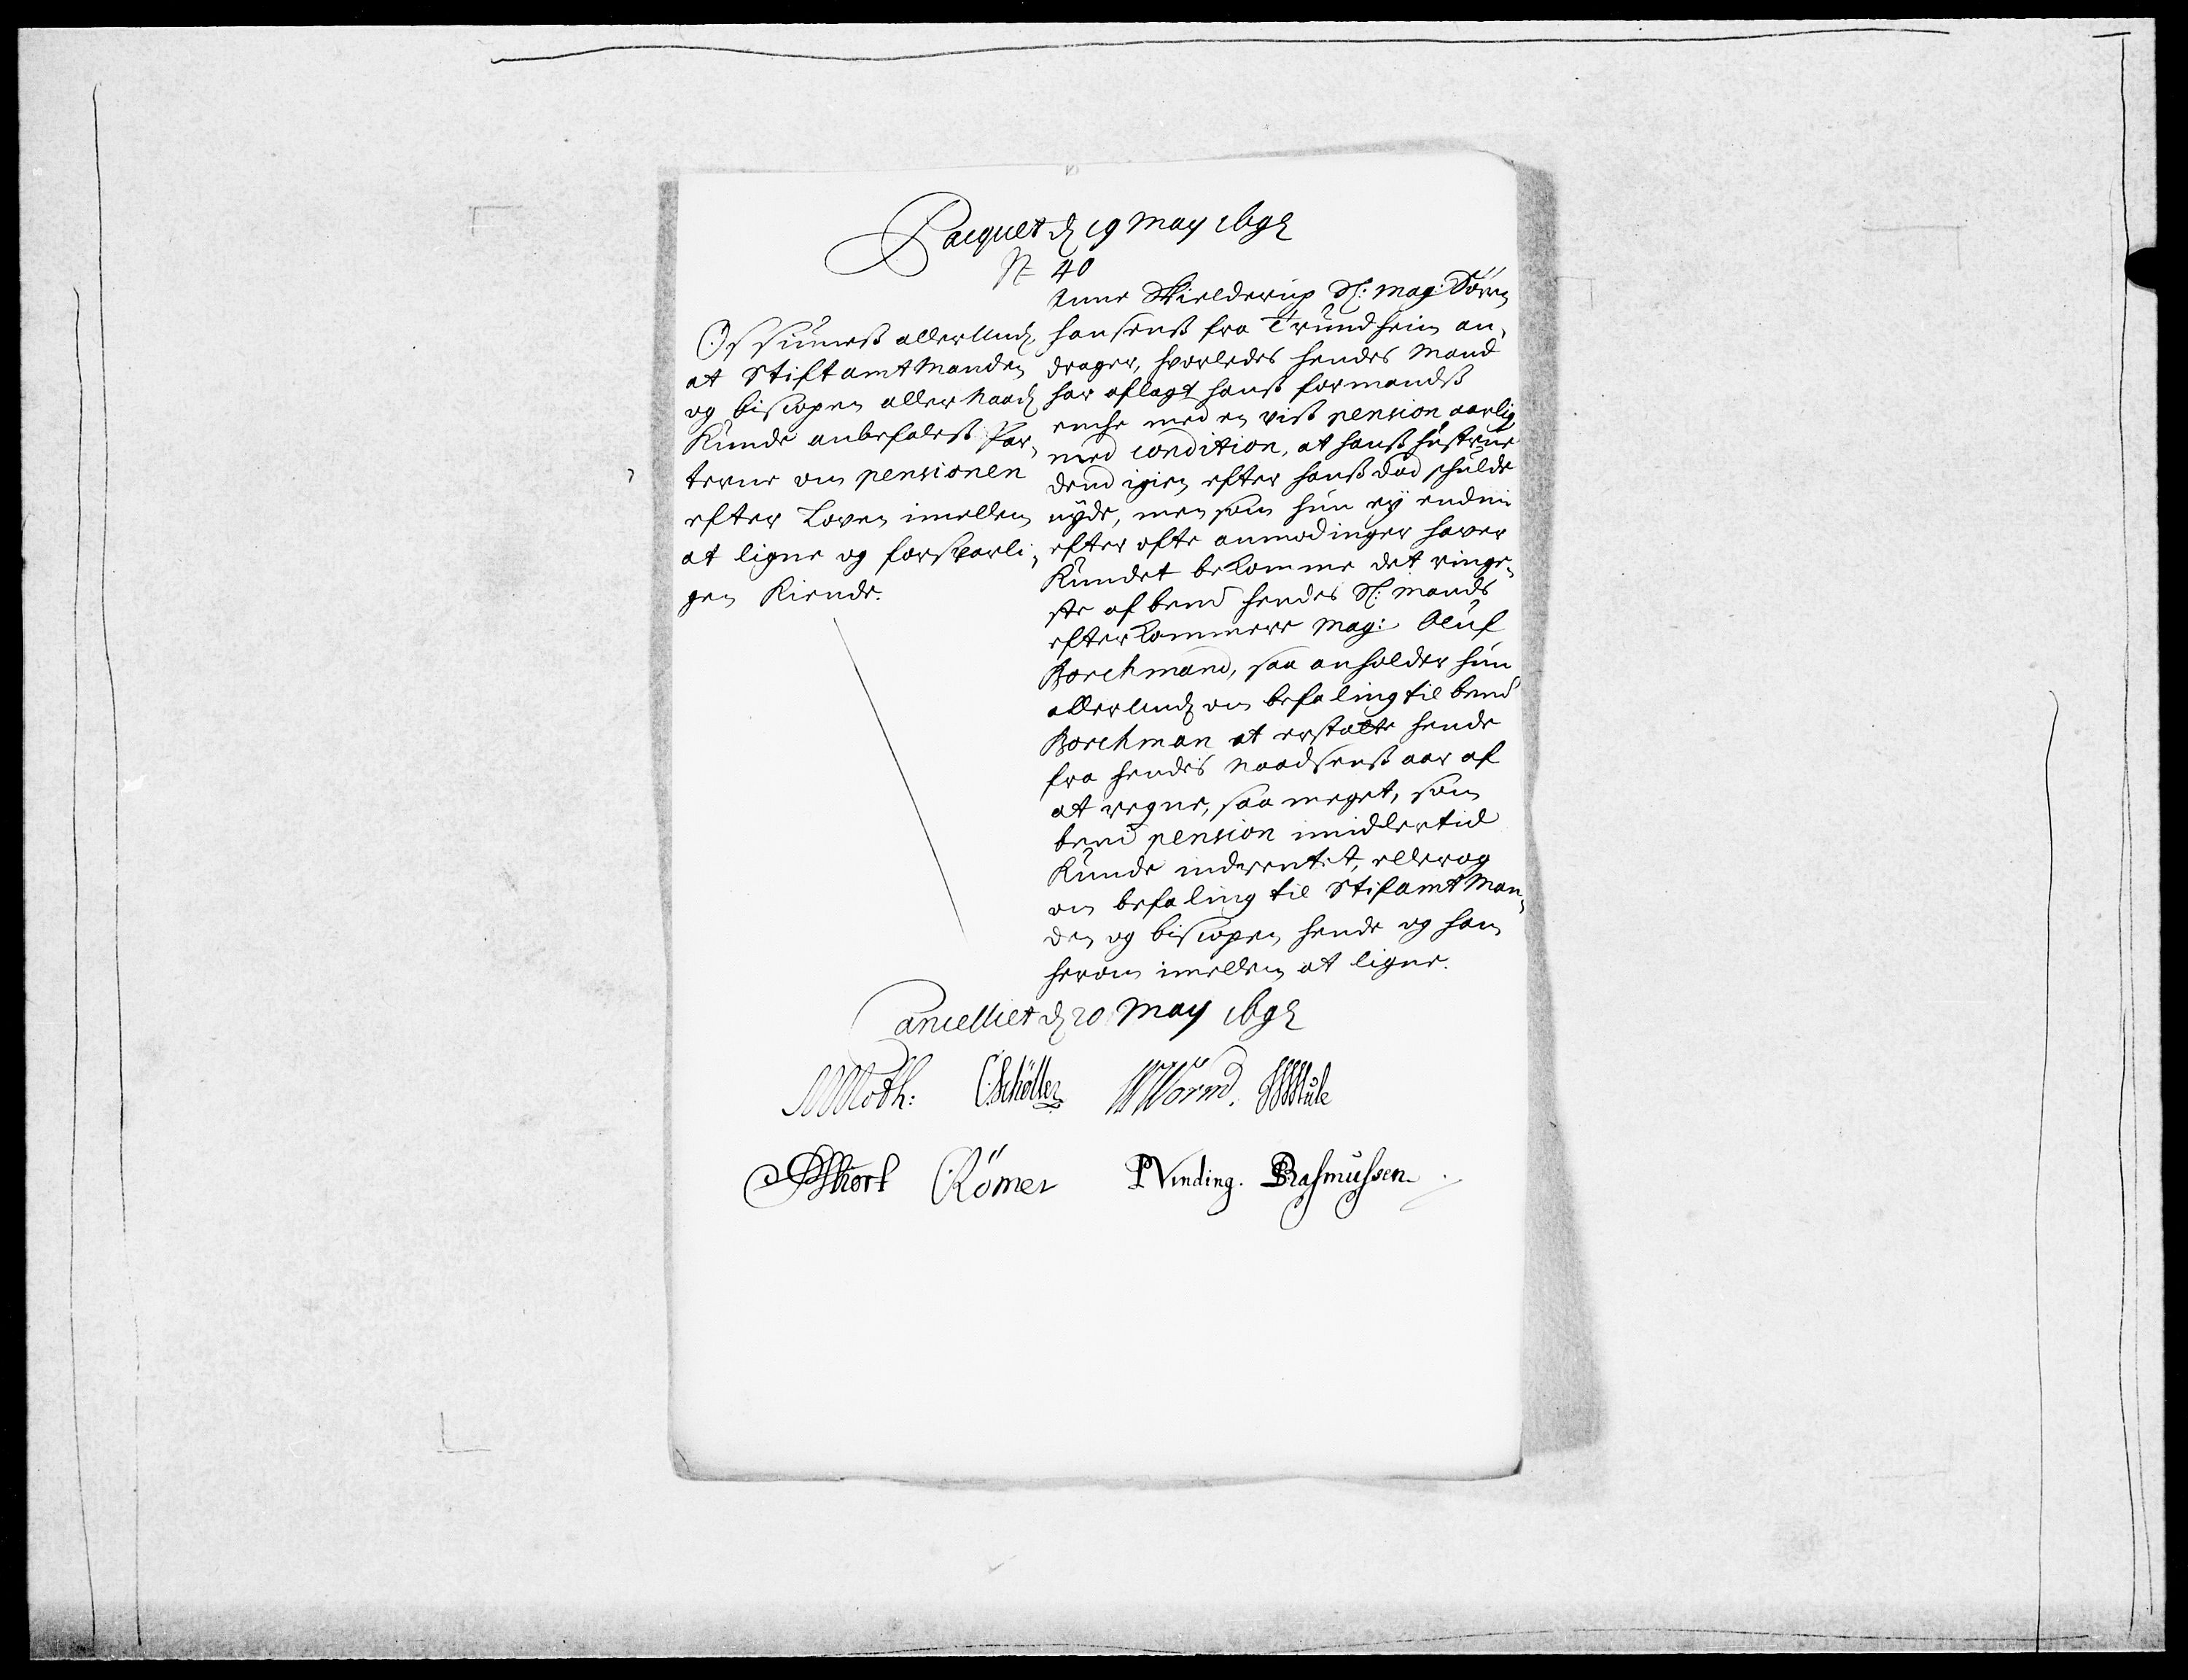 Pacquet d 19 May 1692
No 40
Os siunes allerund.
at Stiftamtmanden
og biscopen allernaad
kunde anbefales Par,,
terne om pensionen
efter Loven imellem
at ligne og forsvarli,,
gen kiende.
Anne Skielderup Sl: Mag: Sören
Hansens fra Trundheim an,,
drager, hvorledes hendes Mand
har aflagt hans formands
enche med en vis pension aarlig
med condition, at hans hustrue
dend igien efter hans död skulde
nyde, men som hun ey endnu
efter ofte anmodninger haver
kundet bekomme det ringe,,
ste af bemd hendes Sl: Mands
efterkommere Mag: Oluf
Borchmand, saa anholder hun
allerund om befaling til bemd
Borchman at erstatte hende
fra hendes Naadsens aar af
at regne, saa meget, som
bemd pension imidlertid
kunde inderentet, eller og
om befaling til Stifamtman,,
den og biscopen hende og ham
herom imellem at ligne.
Cancelliet d 20 May 1692
MMoth: CSchöller WWormd.
Römer PVinding. SRasmussen